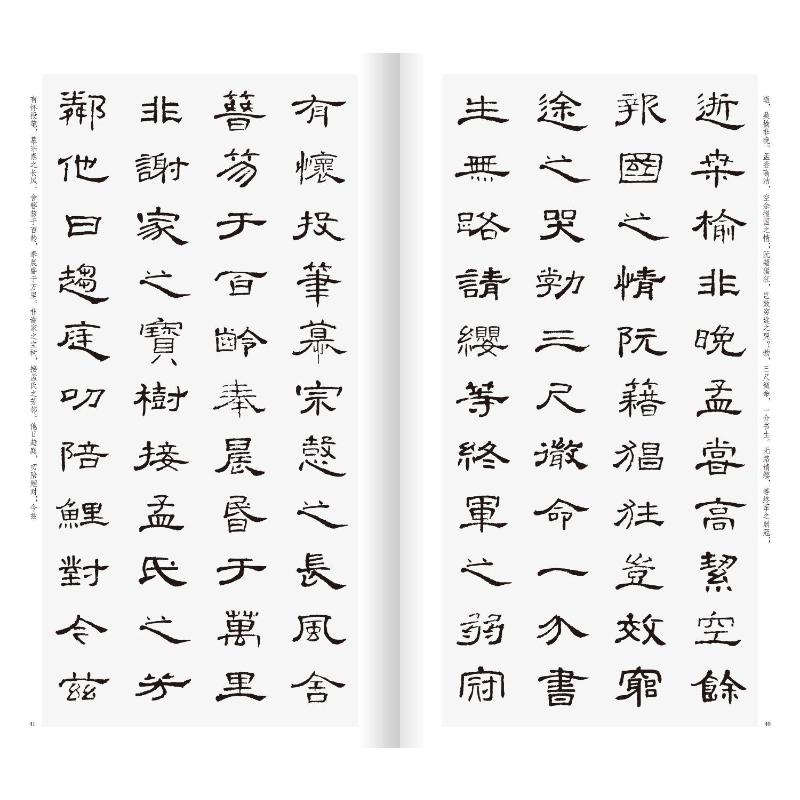 逝，桑榆非晚。孟尝高洁，空余报国之情；阮籍猖狂，岂效穷途之哭？勃，三尺微命，一介书生。无路请缨，等终军之弱冠；
40
逝桒榆非晚孟嘗高絜空餘
報國之情阮籍猖狂豈效窮
途之哭勃三尺微命一介書
生無路請纓等終軍之弱冠
有懷投筆慕宗慤之長風舍
簪笏于百齡奉晨昏于萬里
非謝家之寶樹接孟氏之芳
鄰他日趨庭叨陪鯉對今茲
有怀投笔，慕宗悫之长风。舍簪笏于百龄，奉晨昏于万里。非谢家之宝树，接孟氏之芳邻。他日趋庭，叨陪鲤对；今兹
41